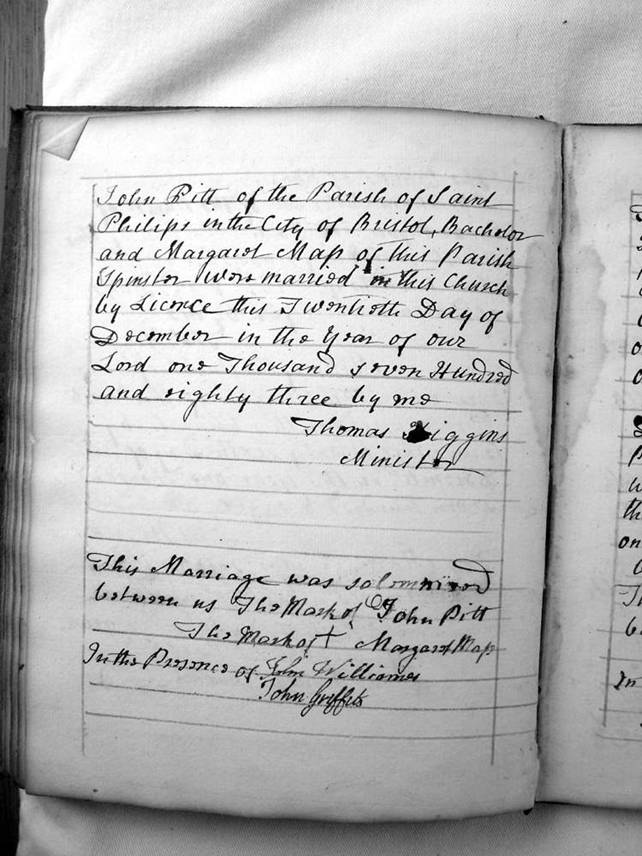 John Pitt of the Parish of Saint
Philips in the City of Bristol, Bachelor
and Margaret Map of this Parish
Spinster were married in this Church
by Licence this Twentieth Day of
December in the Year of our
Lord one Thousand seven Hundred
and eighty three by me
Thomas Higgins
Minister
This Marriage was solemnized
between us The Mark of John Pitt
The Mark of + Margaret Map
In the Presence of John Williams
John Griffiths